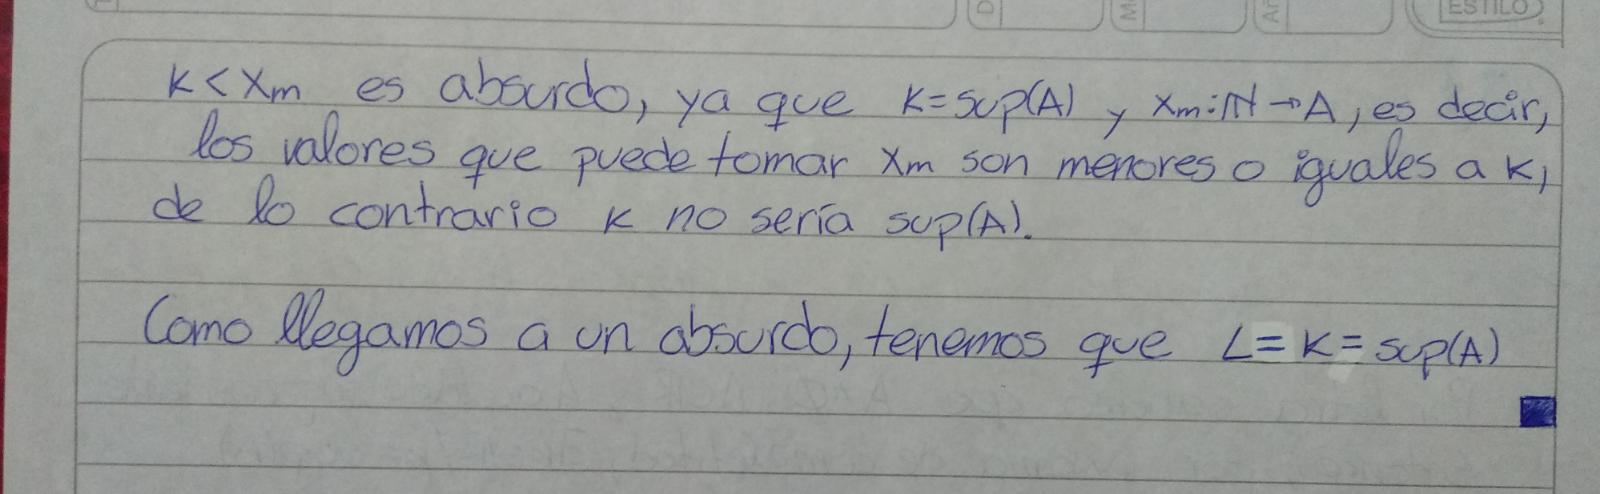 ESTILO
K < Xm es absurdo, ya que K = sup(A) y Xm: ℕ → A, es decir,
los valores que puede tomar Xm son menores o iguales a K,
de lo contrario K no sería sup(A).
Como llegamos a un absurdo, tenemos que L = K = sup(A)